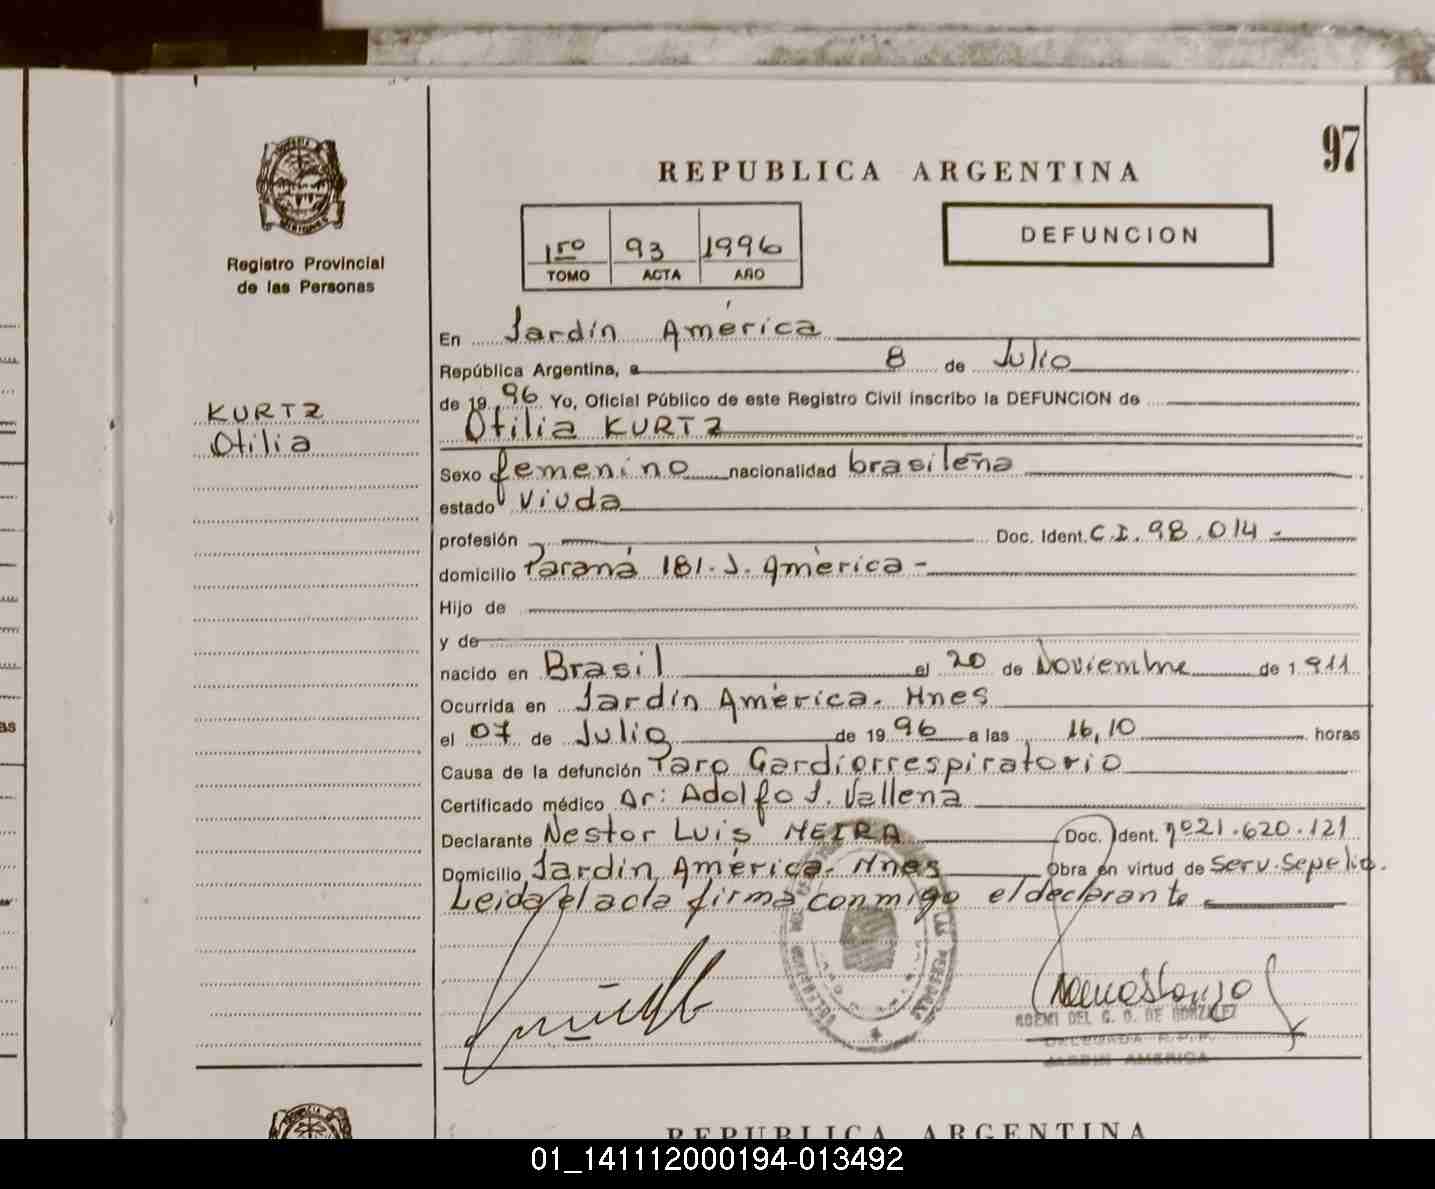 97
REPUBLICA ARGENTINA
1ro 93 1996
TOMO ACTA AÑO
DEFUNCION
Registro Provincial
de las Personas
KURTZ
Otilia
En Jardín América
República Argentina, a 8 de Julio
de 1996 Yo, Oficial Público de este Registro Civil inscribo la DEFUNCION de
Otilia KURTZ
Sexo femenino nacionalidad brasileña
estado Viuda
profesión Doc. Ident. C.I. 98.014-
domicilio Paraná 181. J. América-
Hijo de
y de
nacido en Brasil el 20 de Noviembre de 1.911
Ocurrida en Jardín América. Mnes
el 07 de Julio de 1996 a las 16,10 horas
Causa de la defunción Paro Cardiorrespiratorio
Certificado médico Dr: Adolfo J. Vallena
Declarante Nestor Luis MEIRA Doc. Ident. nº 21.620.121
Domicilio Jardín América. Mnes Obra en virtud de Serv. Sepelio.
Leida el acta firma conmigo el declarante
NOEMI DEL C. DE GONZALEZ
DELEGADA R.P.P.
JARDIN AMERICA
REPUBLICA ARGENTINA
01_141112000194-013492